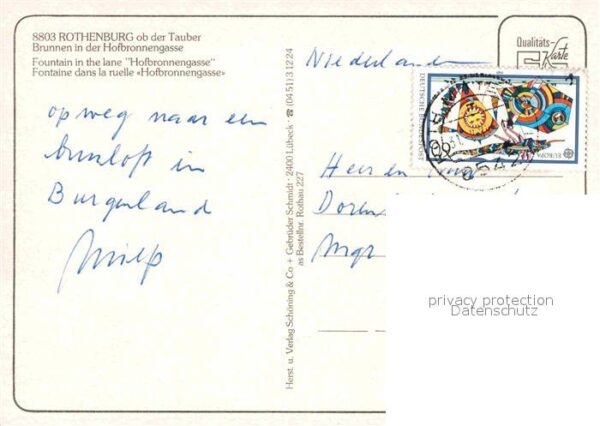 8803 ROTHENBURG ob der Tauber
Brunnen in der Hofbronnengasse
Fountain in the lane "Hofbronnengasse"
Fontaine dans la ruelle «Hofbronnengasse»
op weg naar een
in
Burgenland
Herst. u. Verlag Schöning & Co + Gebrüder Schmidt · 2400 Lübeck · ☎ (04 51) 3 12 24
as Bestellnr. Rothau 227
Qualitäts-
Karte
Niederlande
DEUTSCHE BUNDESPOST
EUROPA
Herren
privacy protection
Datenschutz